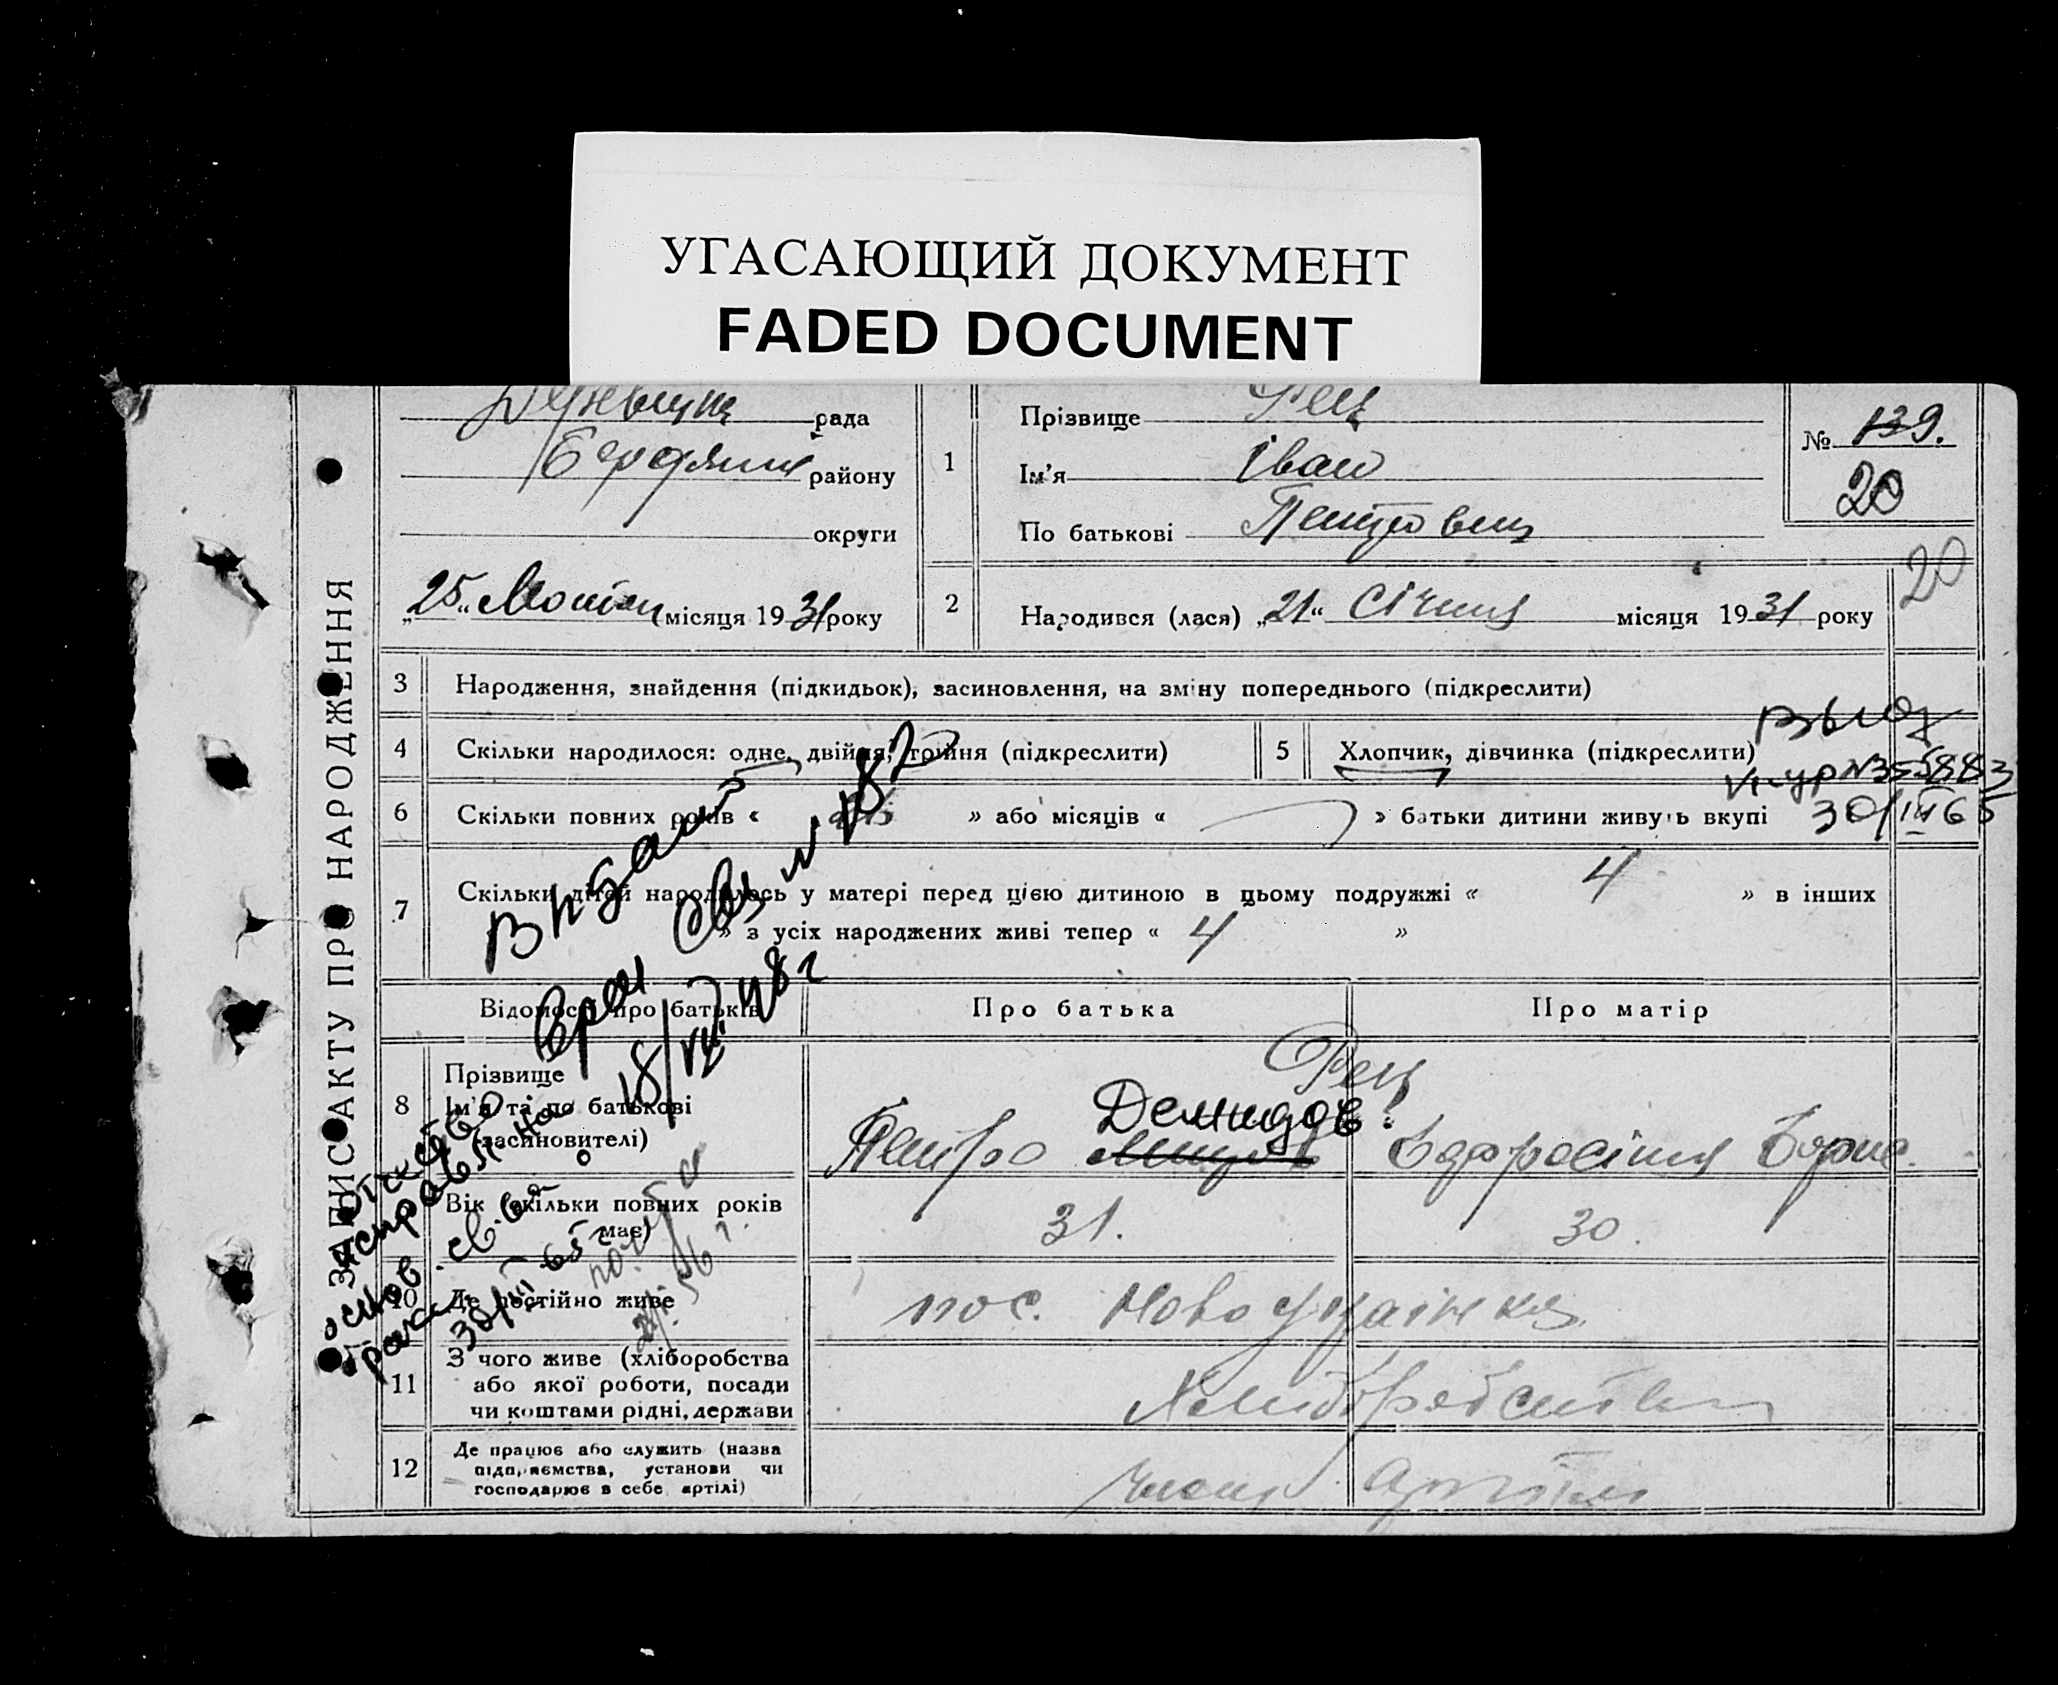 УГАСАЮЩИЙ ДОКУМЕНТ
FADED DOCUMENT
рада
району
округи
„25“ місяця 1931 року
1
Прізвище Рец
Ім'я Іван
По батькові Петрович
№ 139.
20
20
2
Народився (лася) „21“ Січня місяця 1931 року
ЗАПИС АКТУ ПРО НАРОДЖЕННЯ
3 Народження, знайдення (підкидьок), засиновлення, на зміну попереднього (підкреслити)
4 Скільки народилося: одне, двійня, трійня (підкреслити)
5 Хлопчик, дівчинка (підкреслити)
6 Скільки повних років « » або місяців « » батьки дитини живуть вкупі
30/III 65
7 Скільки дітей народилось у матері перед цією дитиною в цьому подружжі « 4 » в інших
» з усіх народжених живі тепер « 4 »
18/VII 48 г
Відомості про батьків
Про батька
Про матір
8 Прізвище
Ім'я та по батькові
(засиновителі)
Рец
Демидов.
Петро
Єфросінія Борис.
Вік (скільки повних років
має)
31.
30.
10 Де постійно живе
пос. Новоукраїнка
11 З чого живе (хліборобства
або якої роботи, посади
чи коштами рідні, держави
12 Де працює або служить (назва
підприємства, установи чи
господарює в себе артілі)
член Артілі
отчество
исправлен на
основ. св. ва
30/III 65